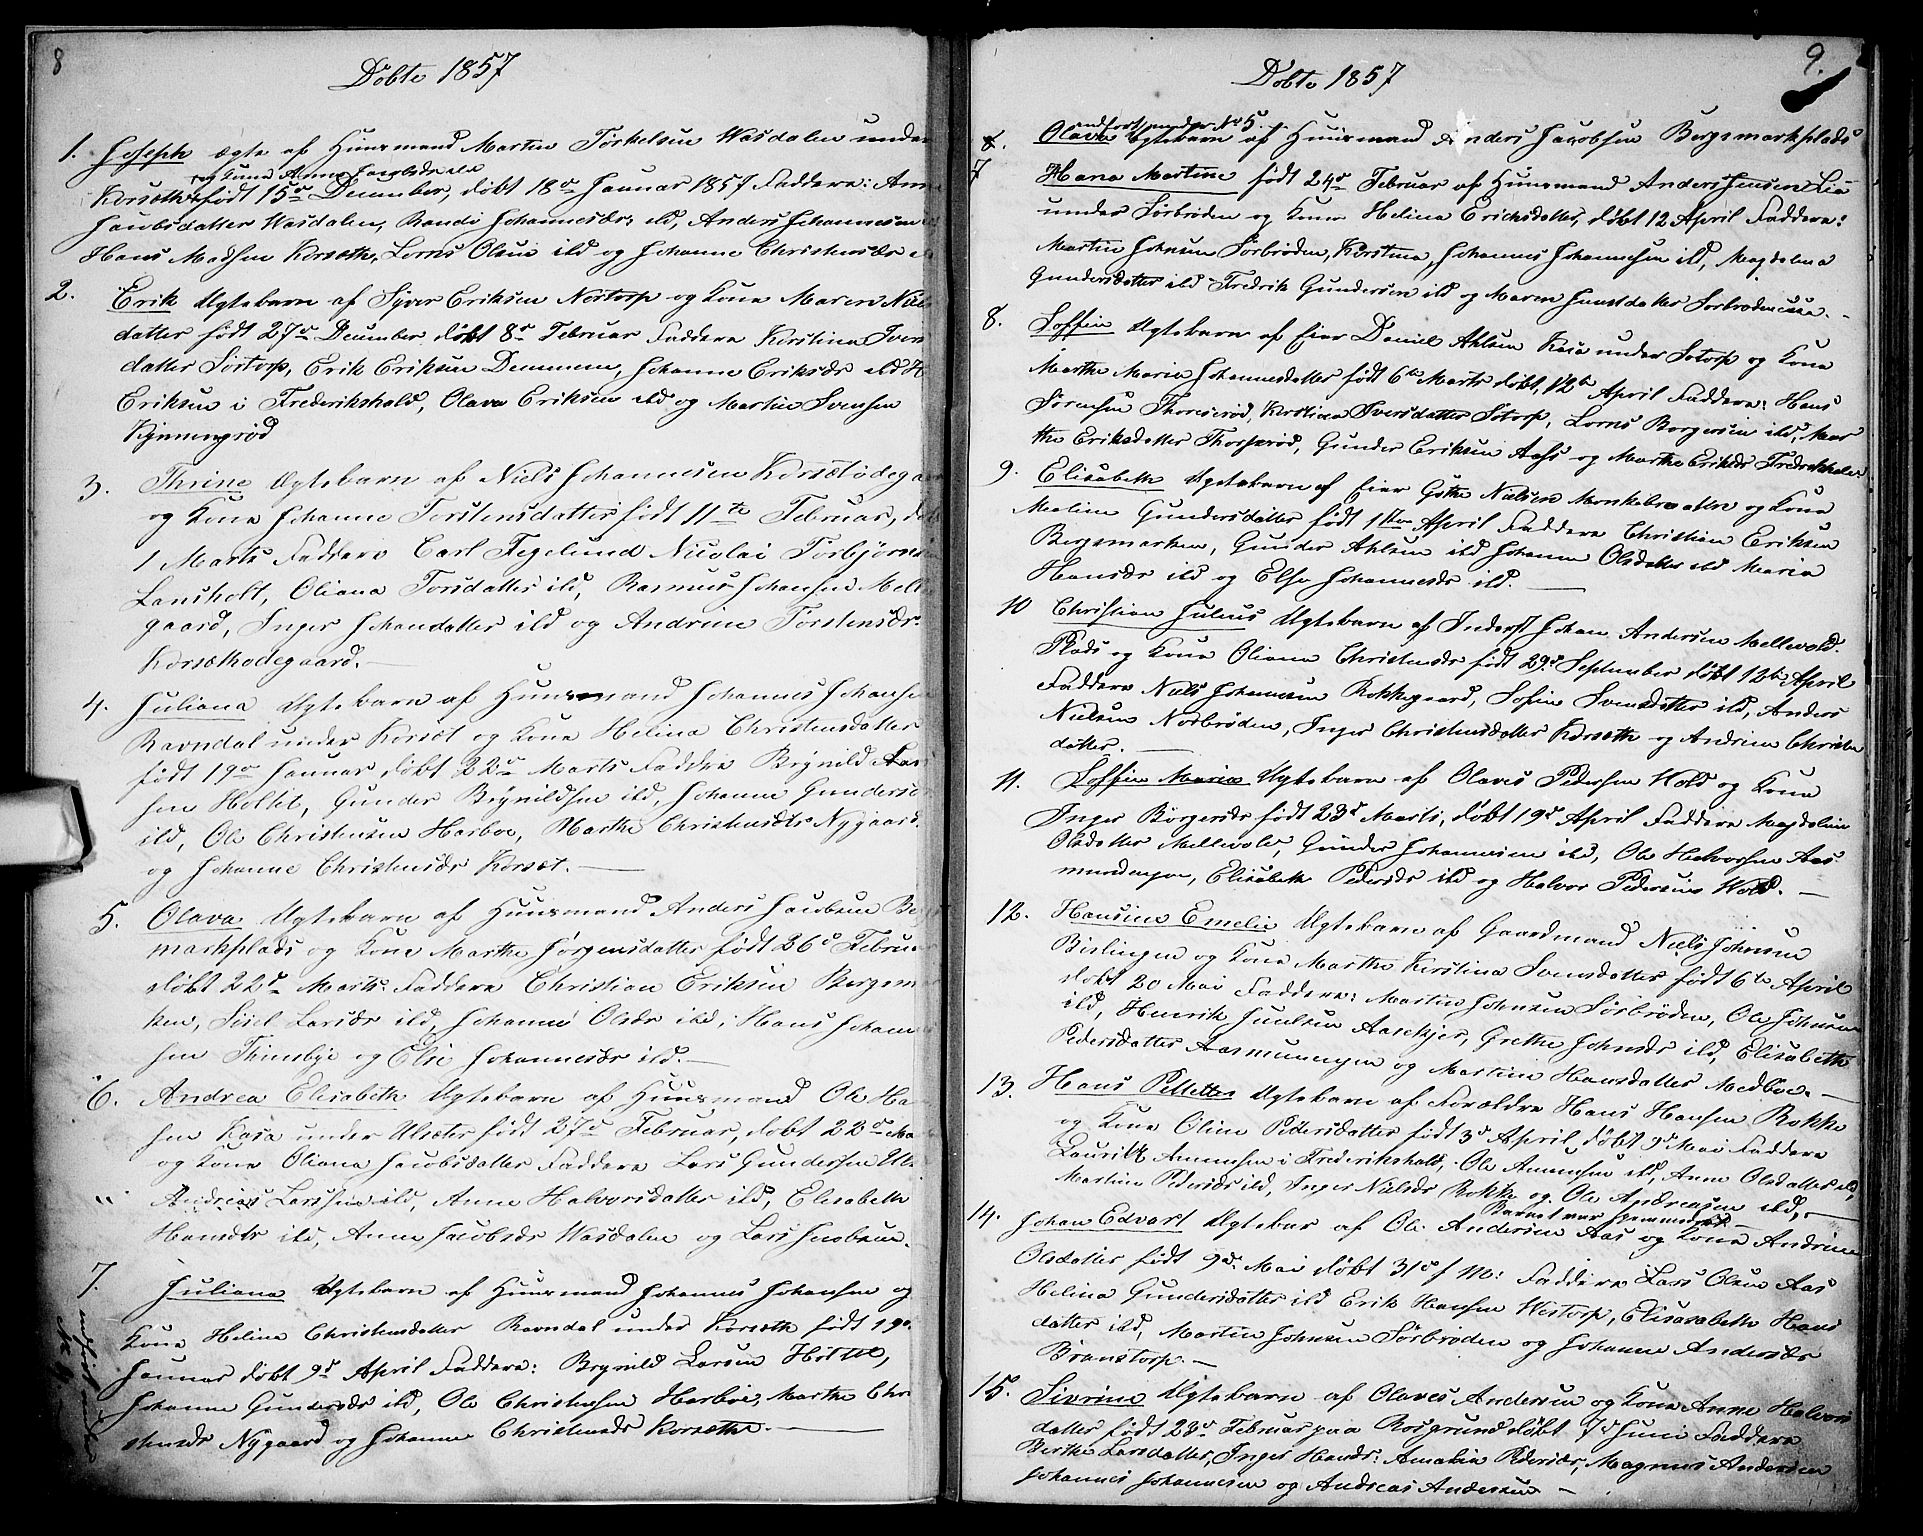 8
Döbte 1857
1. Joseph ægte af Huusmand Martin Torkelsen Wasdalen under
og Kone Anne Jacobsdatter
Korsæth født 15de December, döbt 18de Januar 1857 Faddere: Anne
Jacobsdatter Wasdalen, Randi Johannesdr ibd, Anders Johannesen
Hans Madsen Korsæth, Lorns Olsen ibd og Johanne Christensdr
2. Erik Ugtebarn af Syver Eriksen Nortorp og Kone Maren Niels
datter født 27de December, döbt 8de Februar Faddere Kerstina Ivers
datter Sortorp, Erik Eriksen Demmen, Johanne Eriksdr ibd
Eriksen i Frederikshald, Olava Eriksen ibd og Martin Svensen
Kjenningrød
3. Thrine Ugtebarn af Niels Johannesen Korsetødegaard
og Kone Johanne Torstensdatter født 11te Februar, döbt
1 Marts Faddere Carl Fegelund Nicolai Torbjörnsen
Lansholt, Oliana Torsdatter ibd, Rasmus Johansen Mell
gaard, Inger Johandatter ibd og Andrine Torstensdr
Korsæthodegaard.
4. Juliana Ugtebarn af Huusmand Johannes Johansen
Ravndal under Korsæt og Kone Helina Christensdatter
født 19de Januar, döbt 22de Marts Faddre Brynild Lar
sen Holtet, Gunder Brynildsen ibd, Johanne Gundersdr
ibd, Ole Christensen Harboe, Marthe Christensdr Nygaard
og Johanne Christensdr Korsæt.
5. Olava Ugtebarn af Huusmand Anders Jacobsen Be
markplads og Kone Marthe Jörgensdatter født 26de Februar
döbt 22de Marts. Faddere Christian Eriksen Bergsmar
ken, Sisel Larsdr ibd, Johanne Olsdr ibd, Hans Johan
sen Thinsbye og Elsi Johannesdr ibd.
6. Andrea Elisabeth Ugtebarn af Huusmand Ole Ha
sen Kasa under Ulseter født 27de Februar, döbt 22de Ma
og Kone Oliana Jacobsdatter Faddere Lars Gundersen Ul
Andreas Larsen ibd, Anne Halvorsdatter ibd, Elisabeth
Hansdr ibd, Anne Jacobsdr Wasdalen og Lars Jacobsen.
7. Juliana Ugtebarn af Huusmand Johannes Johansen og
Kone Helina Christensdatter Ravndal under Korsæth født 19de
Januar döbt 9de April Faddere: Brynild Larsen Holtet,
Johanne Gundersdr ibd, Ole Christensen Harboe, Marthe Chri
stensdr Nygaard og Johanne Christensdr Korsæthe.
indført under
No 4
9.
Döbte 1857
andført under No 5.
8. Olava Ugtebarn af Huusmand Anders Jacobsen Bergsmarkplads
7 Hana Martine født 24de Februar af Huusmand Anders Jensen Lia
under Sörbröden og Kone Helina Ericksdatter, döbt 12 April Faddere:
Martin Johnsen Sörbröden, Kirstina, Johannes Johannesen ibd, Magdalena
Gundersdatter ibd Fredrik Gundersen ibd og Maren Juustdatter Sorbroden
8. Soffie Ugtebarn af Eier Daniel Ahlsen Kasa under Sotorp og Kone
Marthe Maria Johannesdatter født 6te Marts döbt 12te April Faddere: Hans
Sörensen Thoreseröd, Kerstina Iversdatter Sotorp, Lorns Borgersen ibd, Mar
the Eriksdatter Thorseröd, Gunder Eriksen Aass og Marthe Eriksdr Fredrikshald
9. Elisabeth Ugtebarn af Eier Gøthe Nielsen Monkebraatten og Kone
Maline Gundersdatter født 1ste April Faddere Christian Eriksen
Bergsmarken, Gunder Ahlsen ibd Johanne Olsdatter ibd Maria
Hansdr ibd og Elsa Johannesdr ibd.
10 Christian Julius Ugtebarn af Inderst Johan Andersen Mellevold
Plads og Kone Oliana Christensdr født 29de September döbt 12te April
Faddere Niels Johannesen Rokkegaard, Sofie Svensdatter ibd, Anders
Nielsen Norbröden, Inger Christensdatter Korsæth og Andrine Christen
datter.
11. Soffie Maria Ugtebarn af Olaves Pedersen Wold og Kone
Inger Börgersdr født 23de Marts, döbt 19de April Faddere Magdaline
Olsdatter Mellevold, Gunder Johannesen ibd, Ole Halvorsen Aas
mundungen, Elisabeth Pedersdr ibd og Halvor Pedersen Wold.
12. Hansine Emelie Ugtebarn af Gaardmand Niels Johnsen
Bislingen og Kone Marthe Kerstina Svensdatter født 6te April
döbt 20 Mai Faddere: Martin Johnsen Sörbröden, Ole Johnsen
ibd, Henrik Juulsen Aaseskjer, Grethe Johnsdr ibd, Elisabeth
Pedersdatter Aasmunungen og Martine Hansdatter Medboe.
13. Hans Pellette Ugtebarn af Forældre Hans Hansen Rokke
og Kone Oline Pedersdatter født 3de April, döbt 9de Mai Faddere
Lauritz Amunsen i Frederikshald, Ole Amunsen ibd, Anne Olsdatter ibd,
Martine Pedersdr ibd, Inger Nielsdr Rokke og Ole Andreasen ibd,
Barnet var hjemmedöbt
14. Johan Edvart Ugtebar af Ole Andersen Aas og Kone Andrine
Olsdatter født 9de Mai döbt 31de f M: Faddere Lars Olsen Aas
Helina Gundersdatter ibd Erik Hansen Westorp, Elisarabeth Hans
datter ibd, Martin Johnsen Sörbröden og Johanne Andersdr
Bränstorp.
15. Sivrine Ugtebarn af Olaves Andersen og Kone Anne Halvors
datter født 28de Februar paa Rosgrund döbt 7de Juni Faddere
Berthe Larsdatter, Inger Hansdr: Amalia Pedersdr, Magnus Andersen
Johannes Johannesen og Andreas Andersen